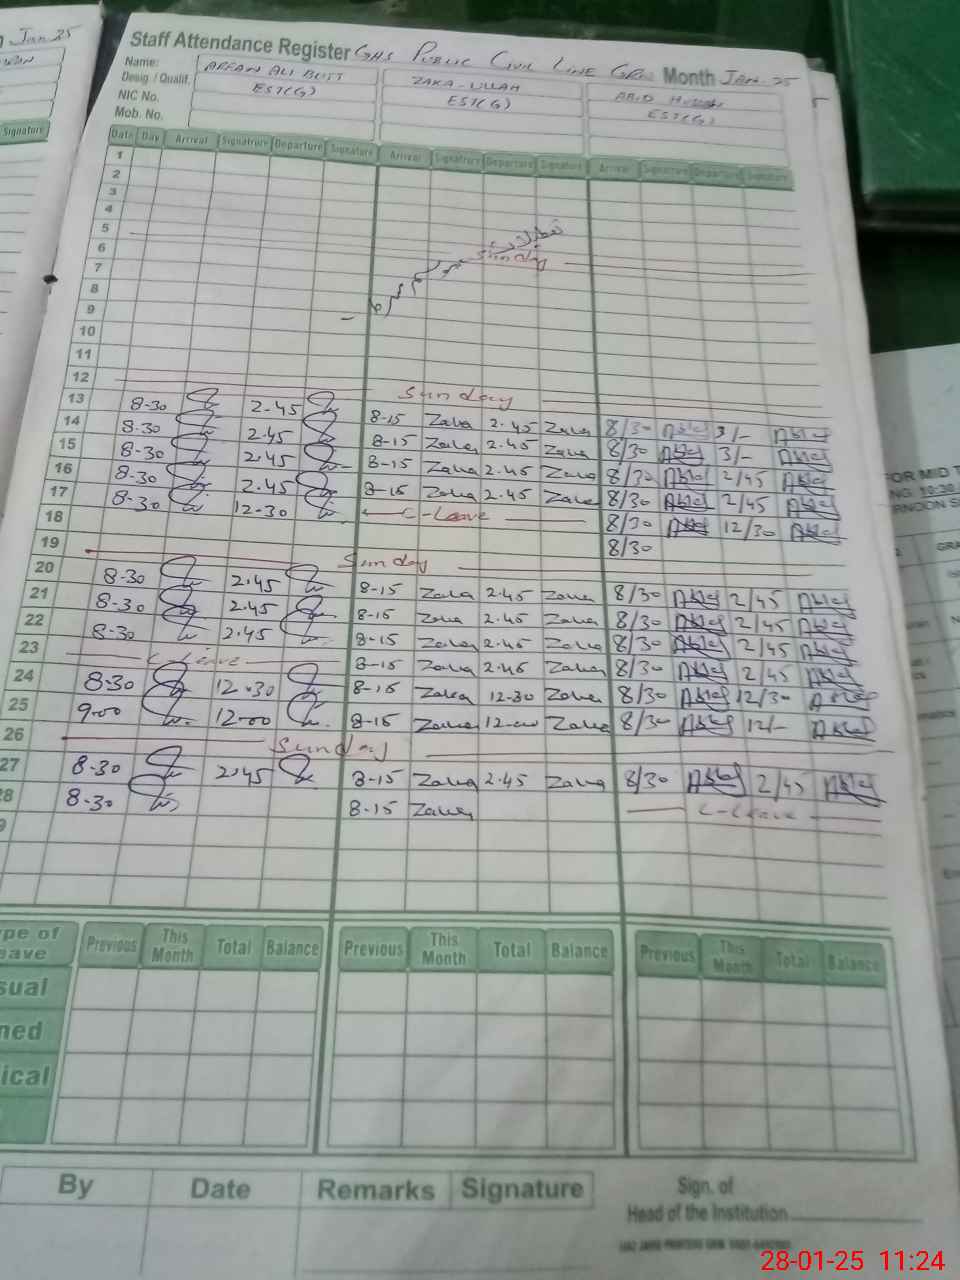 Jan 25
Staff Attendance Register GHS Public Civil Line Month Jan-25
Name: ARFAN ALI BUTT ZAKA-ULLAH ABID
Desig. / Qualif. EST(G) EST(G) EST(G)
NIC No.
Mob. No.
Signature
Date Day Arrival Signature Departure Signature Arrival Signature Departure Signature Arrival Signature Departure Signature
1
2
3
4
5 Sunday
6
7
8
9
10
11
12 Sunday
13 8-30 2-45 8-15 Zaka 2-45 Zaka 8/30 3/-
14 8-30 2-45 8-15 Zaka 2-45 Zaka 8/30 3/-
15 8-30 2-45 8-15 Zaka 2-45 Zaka 8/30 2/45
16 8-30 2-45 8-15 Zaka 2-45 Zaka 8/30 2/45
17 8-30 12-30 C-Leave 8/30 12/30
18 8/30
19 Sunday
20 8-30 2-45 8-15 Zaka 2-45 Zaka 8/30 2/45
21 8-30 2-45 8-15 Zaka 2-45 Zaka 8/30 2/45
22 8-30 2-45 8-15 Zaka 2-45 Zaka 8/30 2/45
23 C-Leave 8-15 Zaka 2-45 Zaka 8/30 2/45
24 8-30 12-30 8-15 Zaka 12-30 Zaka 8/30 12/30
25 9-00 12-00 8-15 Zaka 12-00 Zaka 8/30 12/-
26 Sunday
27 8-30 2-45 8-15 Zaka 2-45 Zaka 8/30 2/45
28 8-30 8-15 Zaka C-Leave
Previous This Month Total Balance Previous This Month Total Balance Previous This Month Total Balance
By Date Remarks Signature
Sign. of
Head of the Institution
28-01-25 11:24